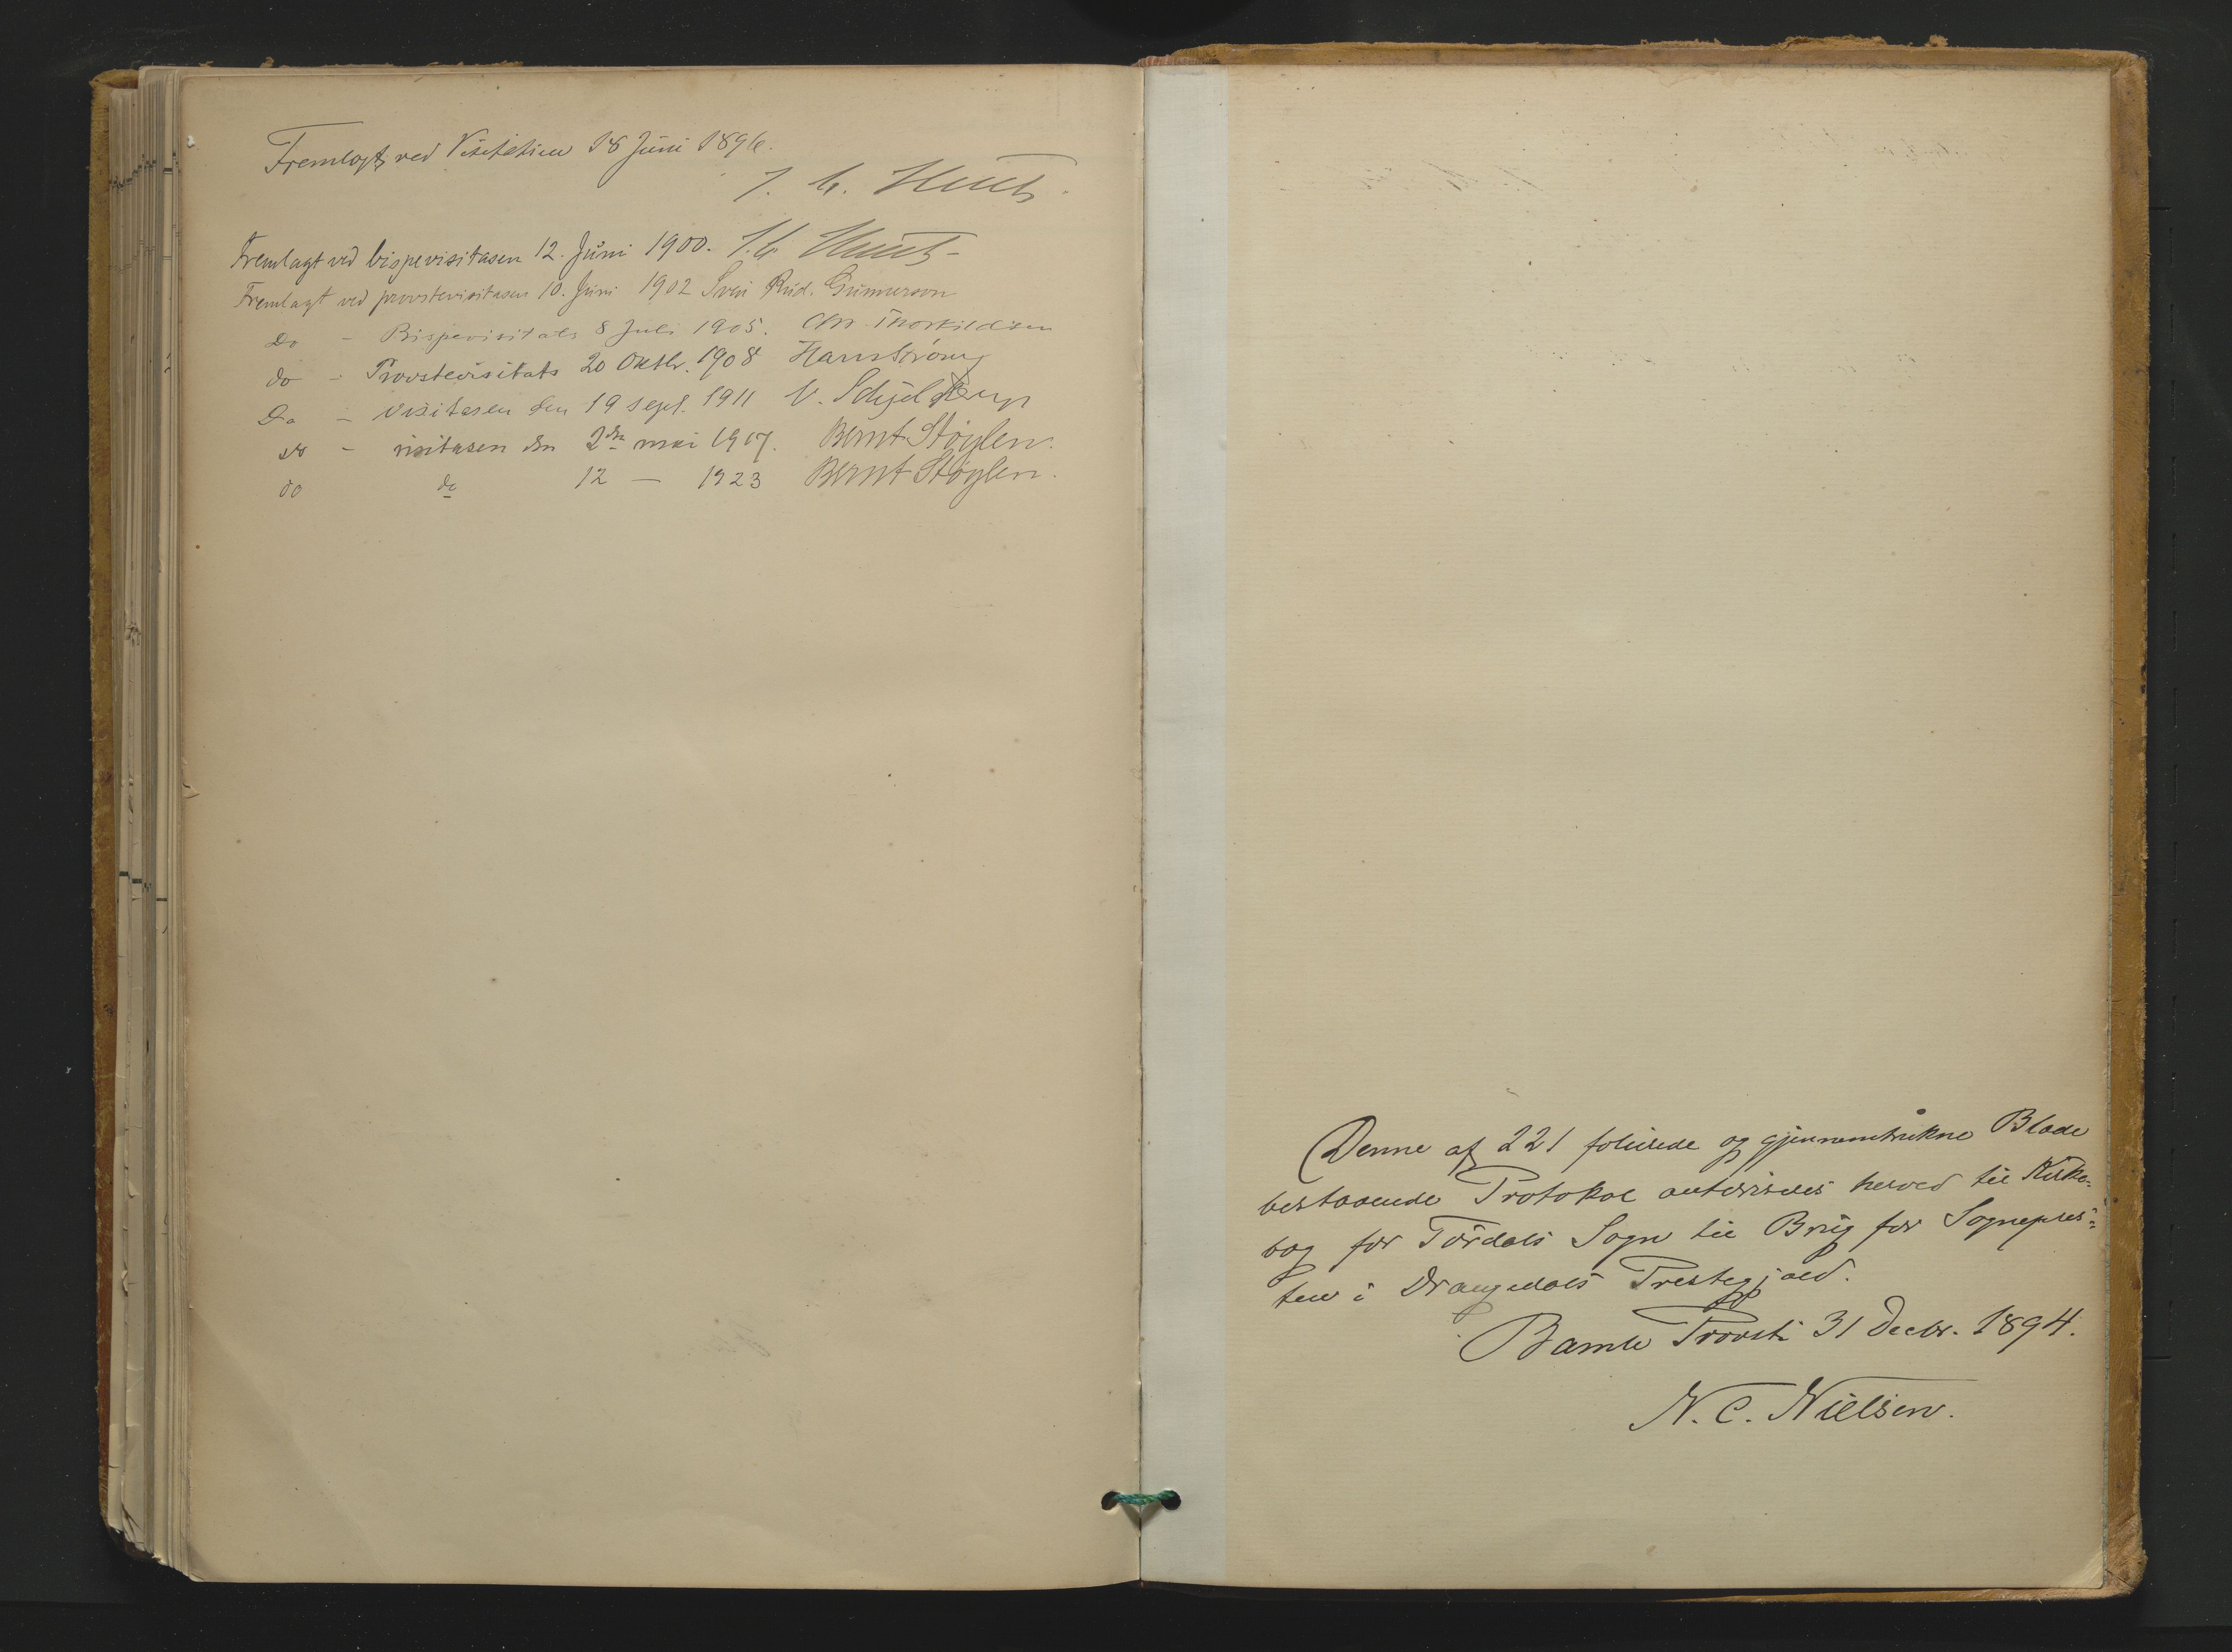 Fremlagt ved Visitatsen 18 Juni 1896.
J. C. Heuch.
Fremlagt ved bispevisitasen 12. Juni 1900. J. C. Heuch
Fremlagt ved provstevisitasen 10. Juni 1902 Svein Rud. Gunnerson
Do - Bispevisitats 8 Juli 1905. Chr. Thorkildsen
do - Provstevisitats 20 Oktbr. 1908 Hans Strøm
Do - Visitasen den 19 sept. 1911 V. Schjelderup
do - visitasen den 2den mai 1917. Bernt Støylen.
do do 12 - 1923 Bernt Støylen.
Denne af 221 folierede og gjennemtrukne Blade
bestaaende Protokol autoriseres herved til Kirke-
bog for Tørdals Sogn til Brug for Sognepres-
ten i Drangedals Prestegjæld.
Bamle Provsti 31 Decbr. 1894.
N. C. Nielsen.